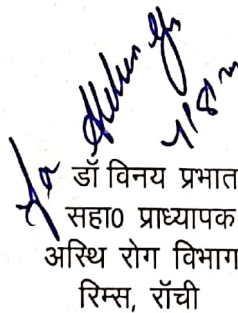 डॉ विनय प्रभात
सहा0 प्राध्यापक
अस्थि रोग विभाग
रिम्स, रॉची